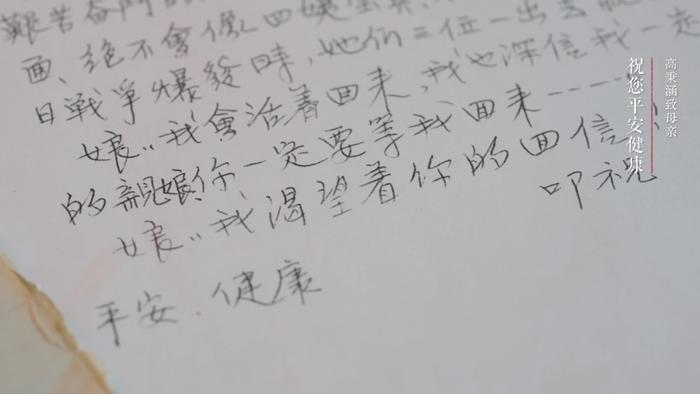 艱苦奮鬥的
絕不會像四姨
日戰爭爆發時，她们三位一出去就
娘：我會活着回来，我也深信我一定
的親娘你一定要等我回来……
娘：我渴望着你的回信！
叩祝
平安 健康
高秉涵致母亲
祝您平安健康